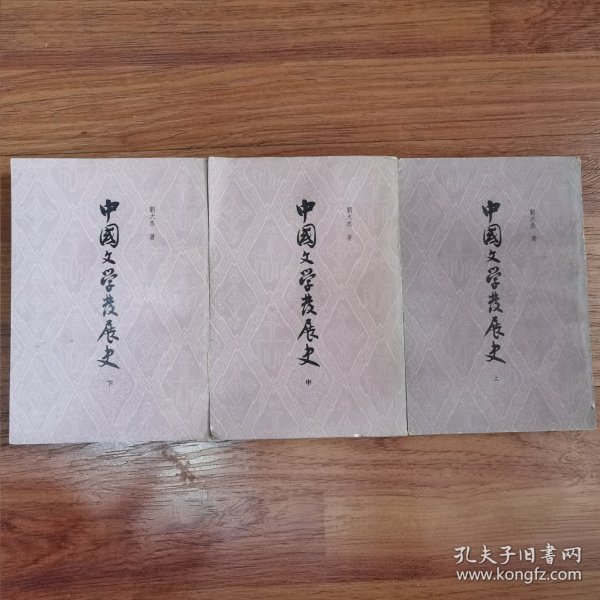 中國文学發展史
劉大杰 著
下
中國文学發展史
劉大杰 著
中
中國文学發展史
劉大杰 著
上
孔夫子旧书网
www.kongfz.com